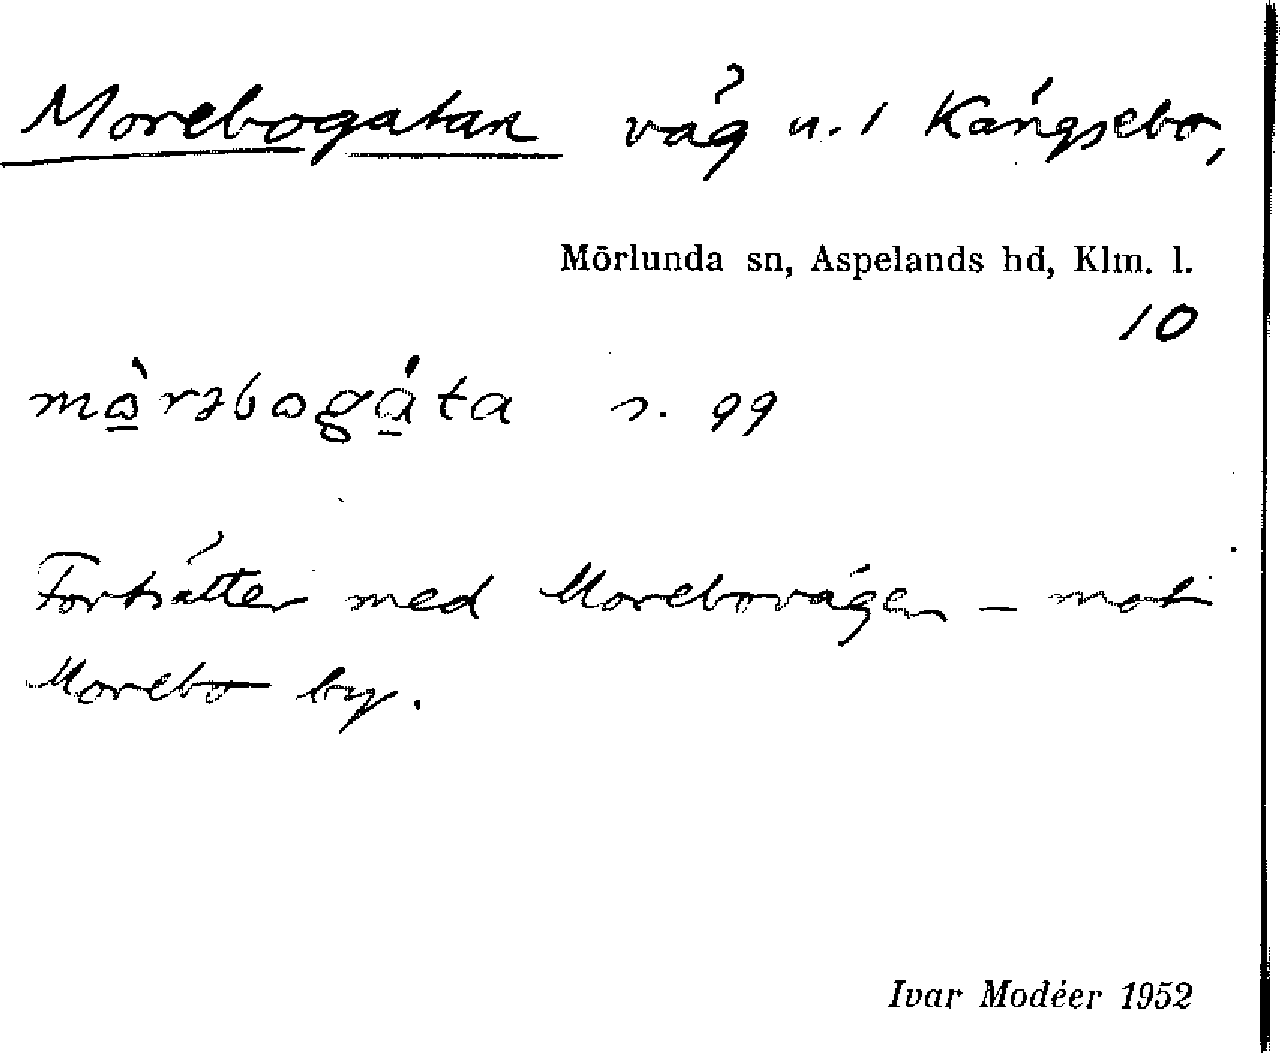 Morebogatan väg u. / Kängsebo,
Mörlunda sn, Aspelands hd, Klm. l.
10
mòrəbogáta s. 99
Fortsätter med Morebovägen – mot
Morebo by.
Ivar Modéer 1952